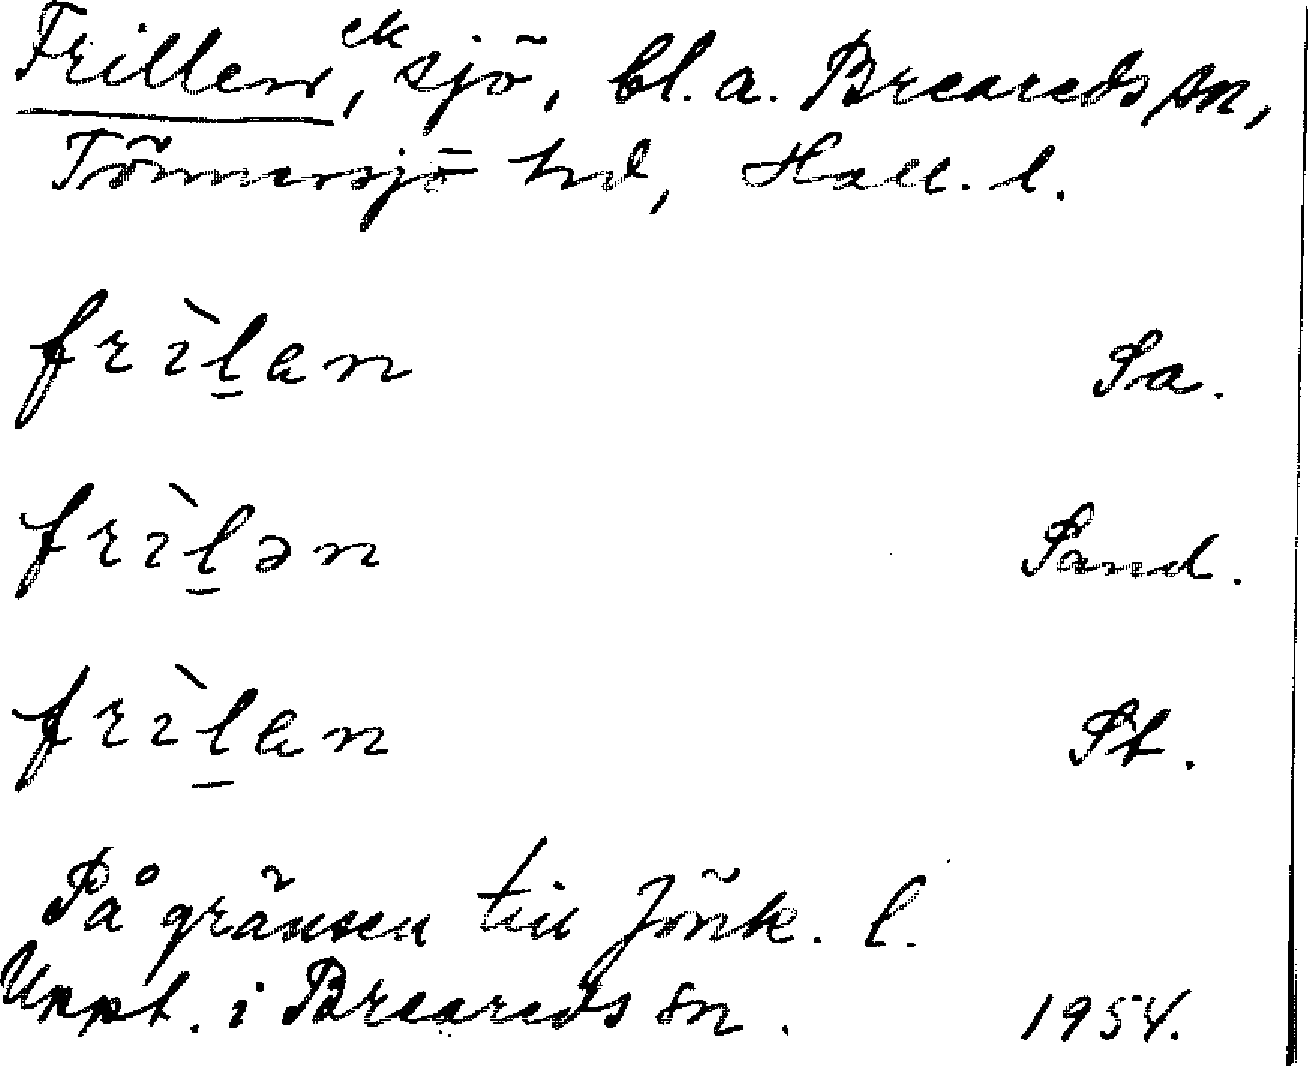 Frillen, ek sjö, bl. a. Breareds sn,
Tönnersjö hd, Hall. l.
frìḻan Sa.
frìḻən Sand.
frìḻan St.
På gränsen till Jönk. l.
Uppt. i Breareds sn. 1954.